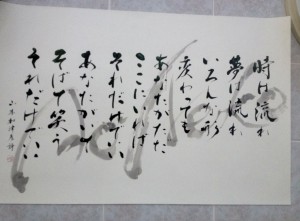 時は流れ
夢は流れ
いろんな形
変わっても
あなたがただ
ここにいれば
それだけでいい
あなたがいて
そばで笑う
それだけでいい